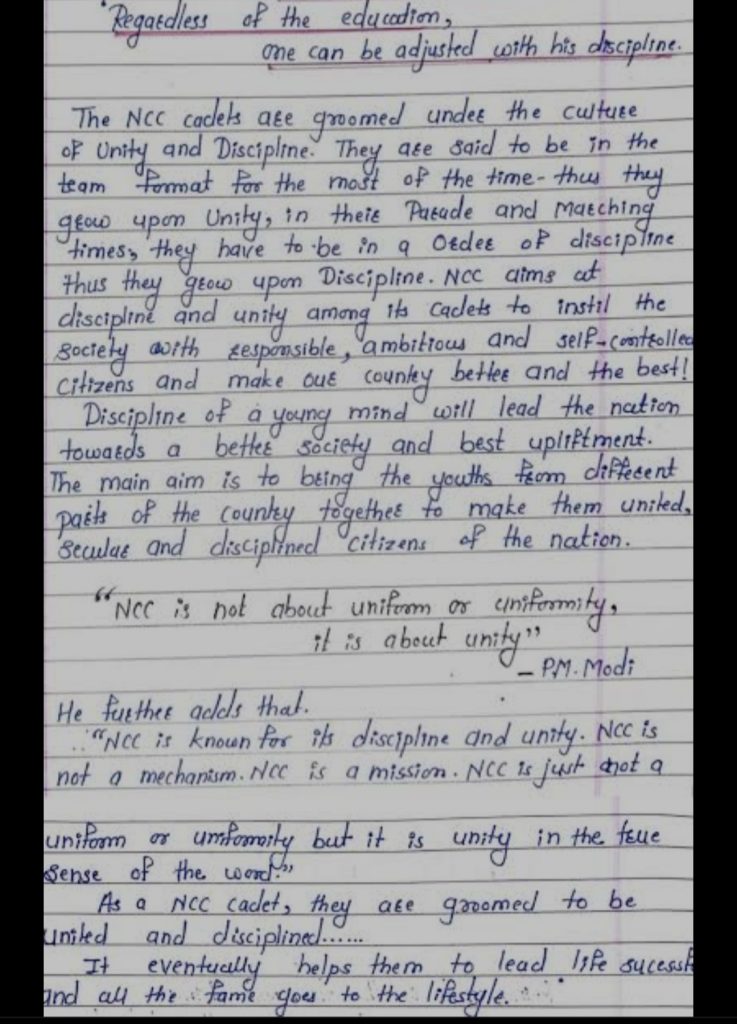 "Regardless of the education,
one can be adjusted with his discipline.
The NCC cadets are groomed under the culture
of Unity and Discipline. They are said to be in the
team format for the most of the time - thus they
grow upon Unity, in their Parade and Marching
times, they have to be in a Order of discipline
thus they grow upon Discipline. NCC aims at
discipline and unity among its cadets to instil the
society with responsible, ambitious and self-controlled
Citizens and make our country better and the best!
Discipline of a young mind will lead the nation
towards a better society and best upliftment.
The main aim is to bring the youths from different
parts of the country together to make them united,
secular and disciplined citizens of the nation.
"NCC is not about uniform or uniformity,
it is about unity"
- P.M. Modi
He further adds that.
.."NCC is known for its discipline and unity. NCC is
not a mechanism. NCC is a mission. NCC is just not a
uniform or uniformity but it is unity in the true
sense of the word."
As a NCC cadet, they are groomed to be
united and disciplined......
It eventually helps them to lead life sucessf
and all the fame goes to the lifestyle.